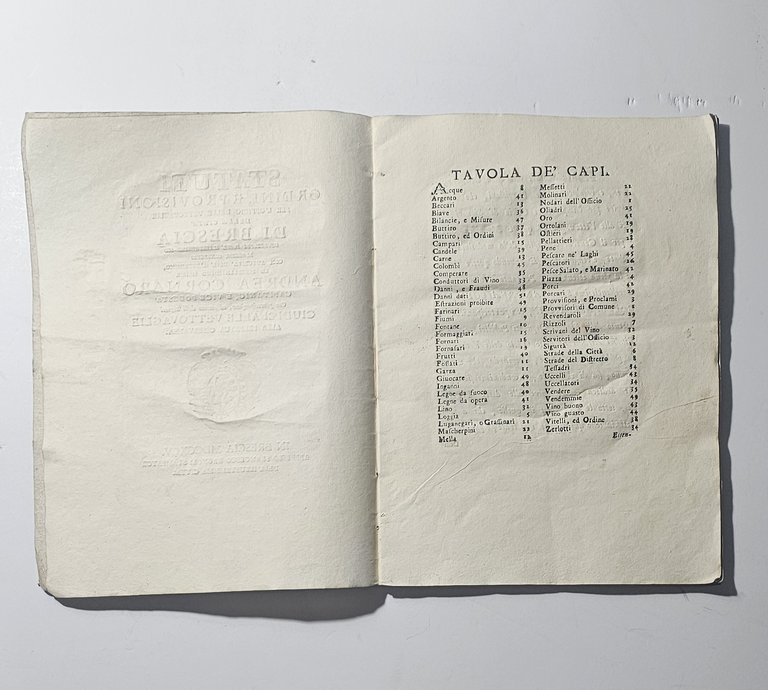 STATUTI
GRIDE, E PROVISIONI
DI BRESCIA
ANDREA CORNARO
GIUDICI ALLE VETTOVAGLIE
IN BRESCIA
TAVOLA DE' CAPI.
Acque 8
Argento 41
Beccari 13
Biave 36
Bilancie, e Misure 47
Buttiro 37
Buttiro, ed Ordini 38
Campari 15
Candele 39
Carne 13
Colombi 45
Comperare 35
Conduttori di Vino 33
Danni, e Fraudi 48
Danni dati 51
Estrazioni proibite 49
Farinari 15
Fiumi 9
Fontane 10
Formaggiari 15
Fornari 16
Fornasari 19
Frutti 40
Fossati 11
Garza 11
Giuocare 49
Inganni 48
Legne da fuoco 40
Legne da opera 41
Lino 32
Loggia 5
Luganegari, o Grassinari 21
Mascherpini 22
Mella 12
Messetti 21
Molinari 22
Nodari dell'Officio 1
Oliadri 25
Oro 41
Ortolani 19
Ostieri 19
Pellattieri 23
Pene 4
Pescare ne' Laghi 45
Pescatori 26
Pesce Salato, e Marinato 42
Piazza 4
Porci 42
Porcari 29
Provvisioni, e Proclami 3
Provvisori di Comune 1
Revendaroli 29
Rizzoli 7
Scrivani del Vino 32
Servitori dell'Officio 3
Sigurtà 12
Strade della Città 6
Strade del Distretto 8
Tessadri 34
Uccelli 43
Uccellatori 34
Vendere 35
Vendemmie 49
Vino buono 43
Vino guasto 44
Vitelli, ed Ordine 38
Zerlotti 34